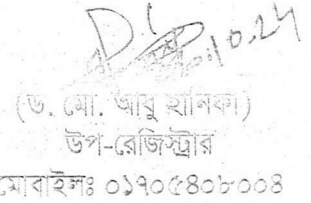 10.24
(ড. মো. আবু হানিফা)
উপ-রেজিস্ট্রার
মোবাইলঃ ০১৭০৫৪০৮০০৪